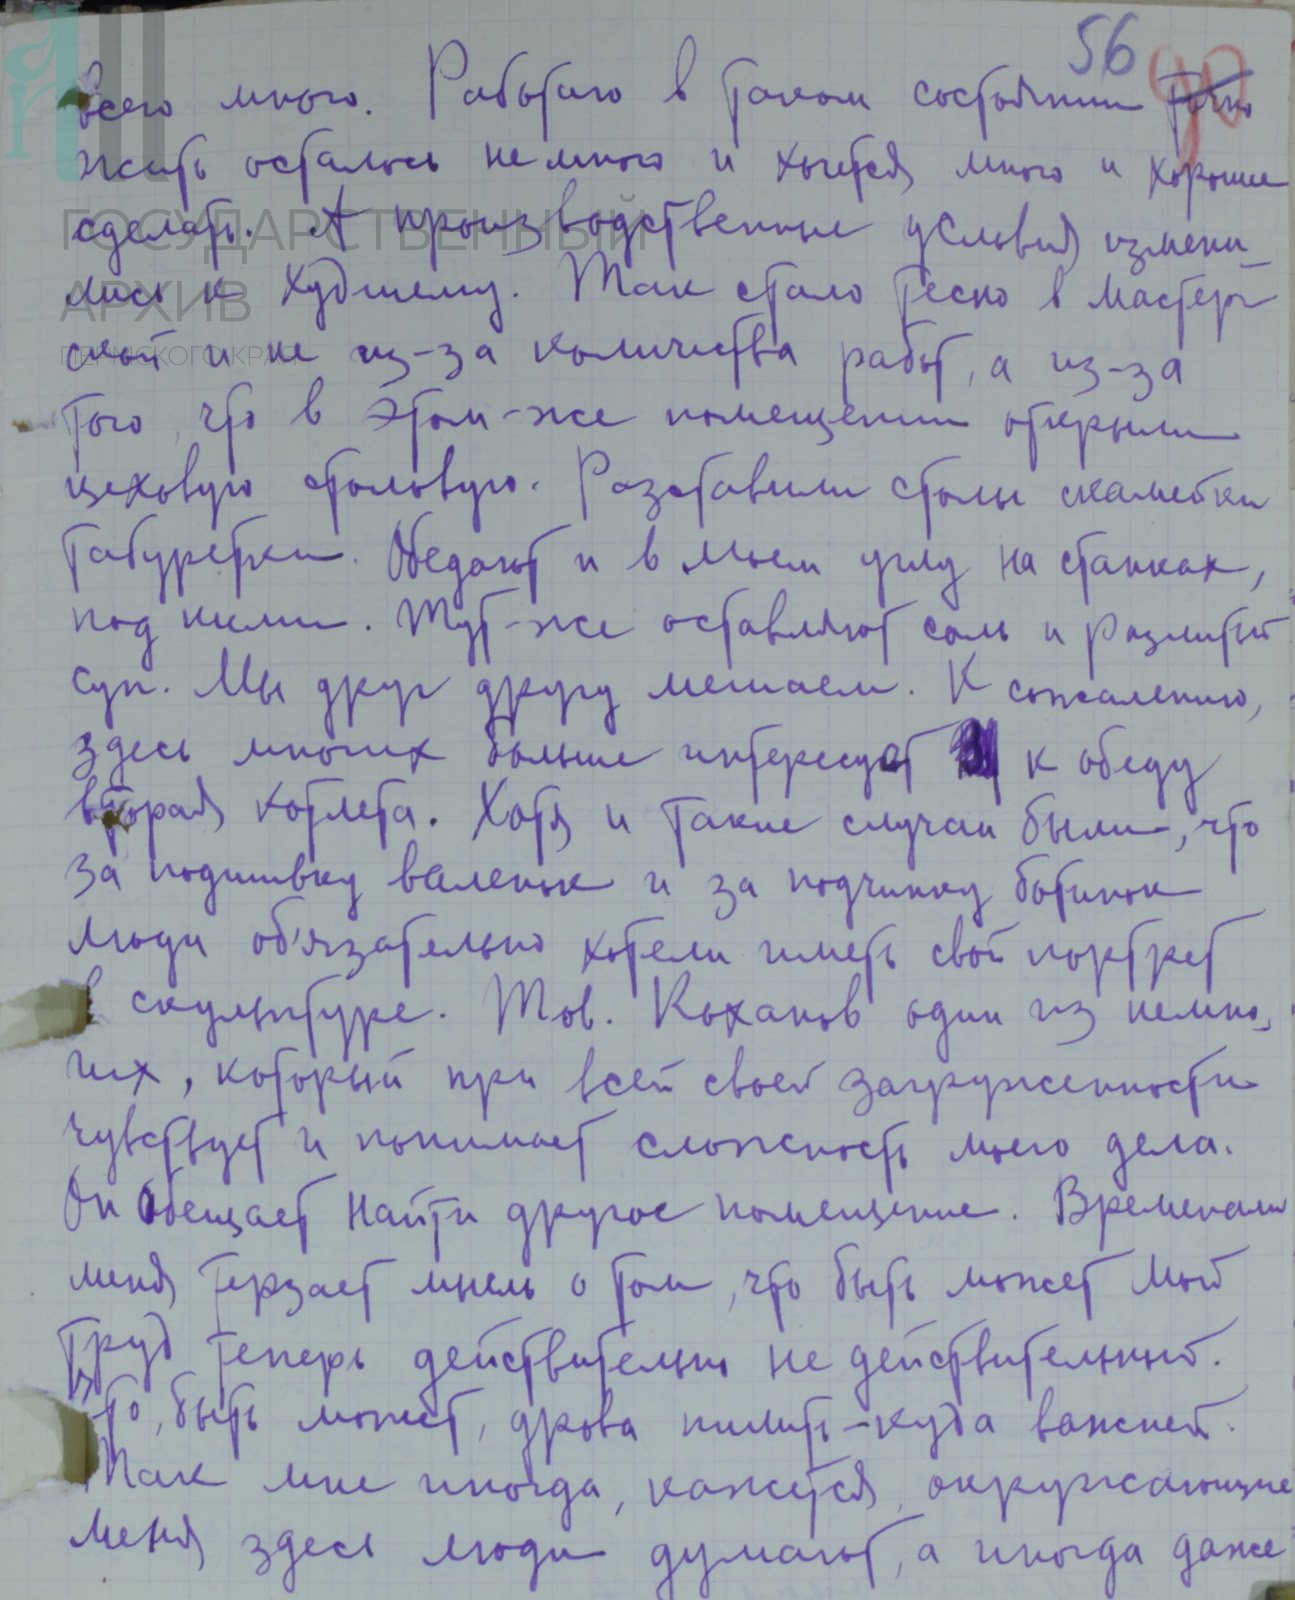 56
90
всего много. Работаю в таком состоянии точно
жить осталось немного и хочется много и хорошее
сделать. А производственные условия измени-
лись к худшему. Так стало тесно в мастер-
ской и не из-за количества работ, а из-за
того, что в этом-же помещении открыли
цеховую столовую. Разставили столы скамейки
табуретки. Обедают и в моем углу на станках,
под ними. Тут-же оставляют соль и разлитый
суп. Мы друг другу мешаем. К сожалению,
здесь многих больше интересует к обеду
вторая котлета. Хотя и такие случаи были, что
за подшивку валенок и за подчинку ботинок
люди об'язательно хотели иметь свой портрет
в скульптуре. Тов. Коханов один из немно-
гих, который при всей своей загруженности
чувствует и понимает сложность моего дела.
Он обещает найти другое помещение. Временами
меня терзает мысль о том, что быть может мой
труд теперь действительно не действительный.
Что, быть может, дрова пилить-куда важней.
Так мне иногда, кажется, окружающие
меня здесь люди думают, а иногда даже
ГОСУДАРСТВЕННЫЙ
АРХИВ
ПЕРМСКОГО КРАЯ